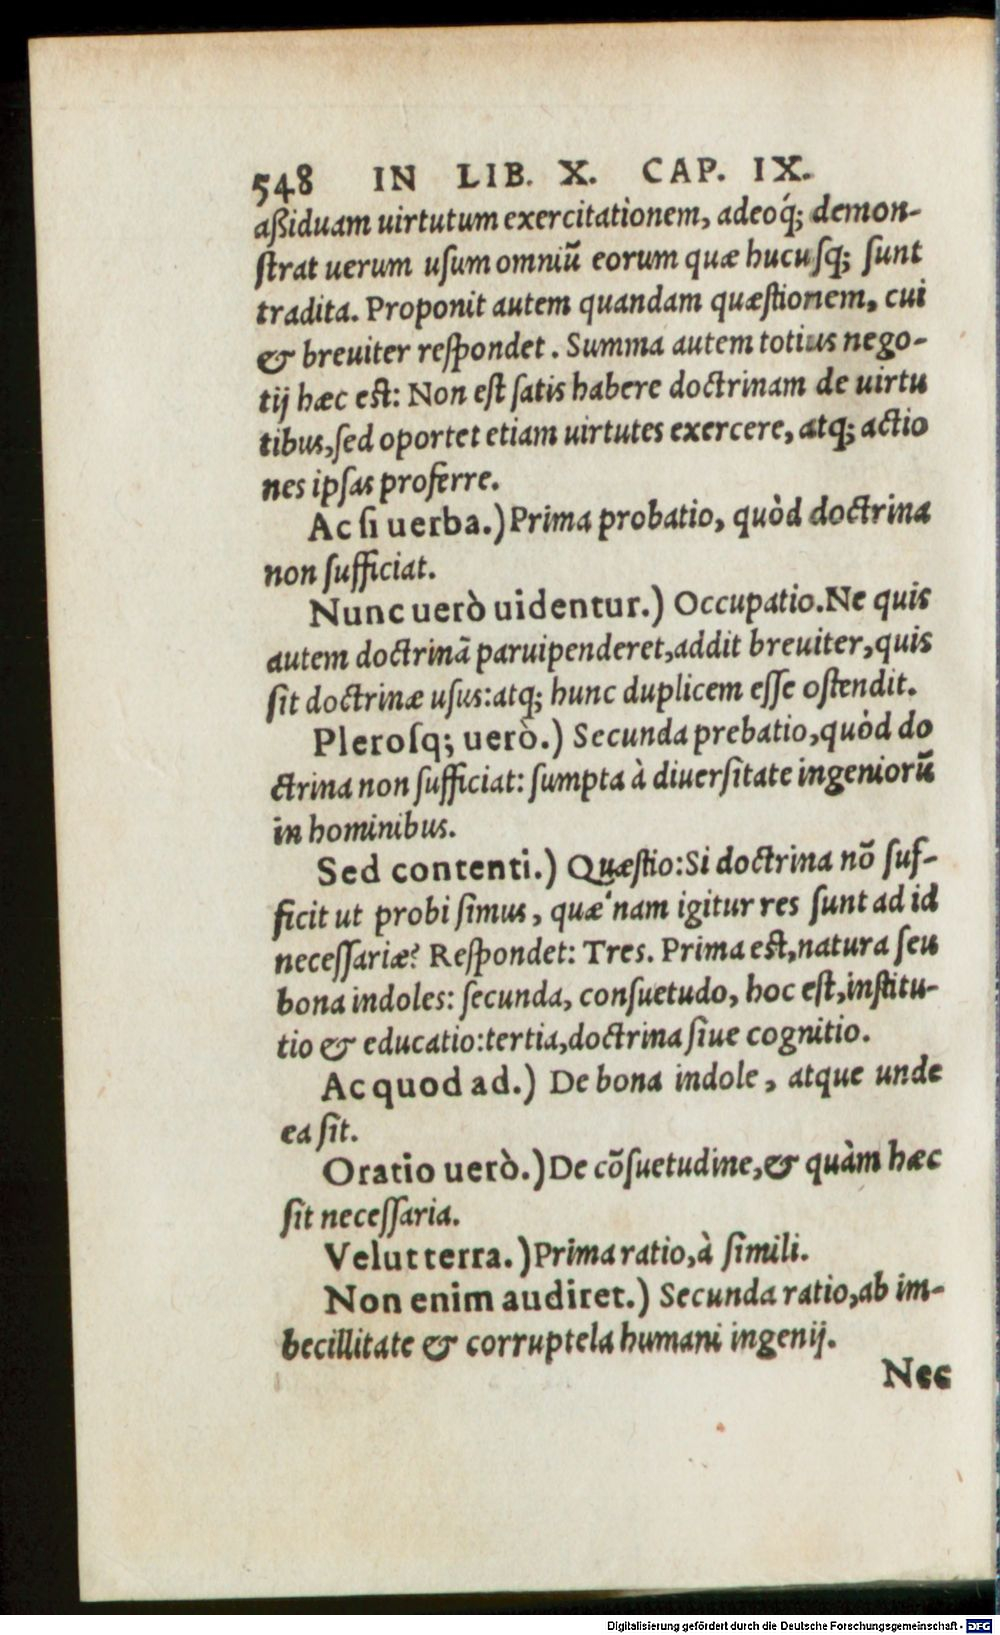 548 IN LIB. X. CAP. IX.
aßiduam uirtutum exercitationem, adeoq́; demon-
ſtrat uerum uſum omniũ eorum quæ hucuſq; ſunt
tradita. Proponit autem quandam quæſtionem, cui
& breuiter reſpondet. Summa autem totius nego-
tij hæc eſt: Non eſt ſatis habere doctrinam de uirtu
tibus, ſed oportet etiam uirtutes exercere, atq; actio
nes ipſas proferre.
Ac ſi uerba.) Prima probatio, quòd doctrina
non ſufficiat.
Nunc uerò uidentur.) Occupatio. Ne quis
autem doctrinã paruipenderet, addit breuiter, quis
ſit doctrinæ uſus: atq; hunc duplicem eſſe oſtendit.
Pleroſq; uerò.) Secunda prebatio, quòd do
ctrina non ſufficiat: ſumpta à diuerſitate ingeniorũ
in hominibus.
Sed contenti.) Quæſtio: Si doctrina nõ ſuf-
ficit ut probi ſimus, quæ'nam igitur res ſunt ad id
neceſſariæ? Reſpondet: Tres. Prima eſt, natura ſeu
bona indoles: ſecunda, conſuetudo, hoc eſt, inſtitu-
tio & educatio: tertia, doctrina ſiue cognitio.
Ac quod ad.) De bona indole, atque unde
ea ſit.
Oratio uerò.) De cõſuetudine, & quàm hæc
ſit neceſſaria.
Velut terra.) Prima ratio, à ſimili.
Non enim audiret.) Secunda ratio, ab im-
becillitate & corruptela humani ingenij.
Nec
Digitalisierung gefördert durch die Deutsche Forschungsgemeinschaft - DFG